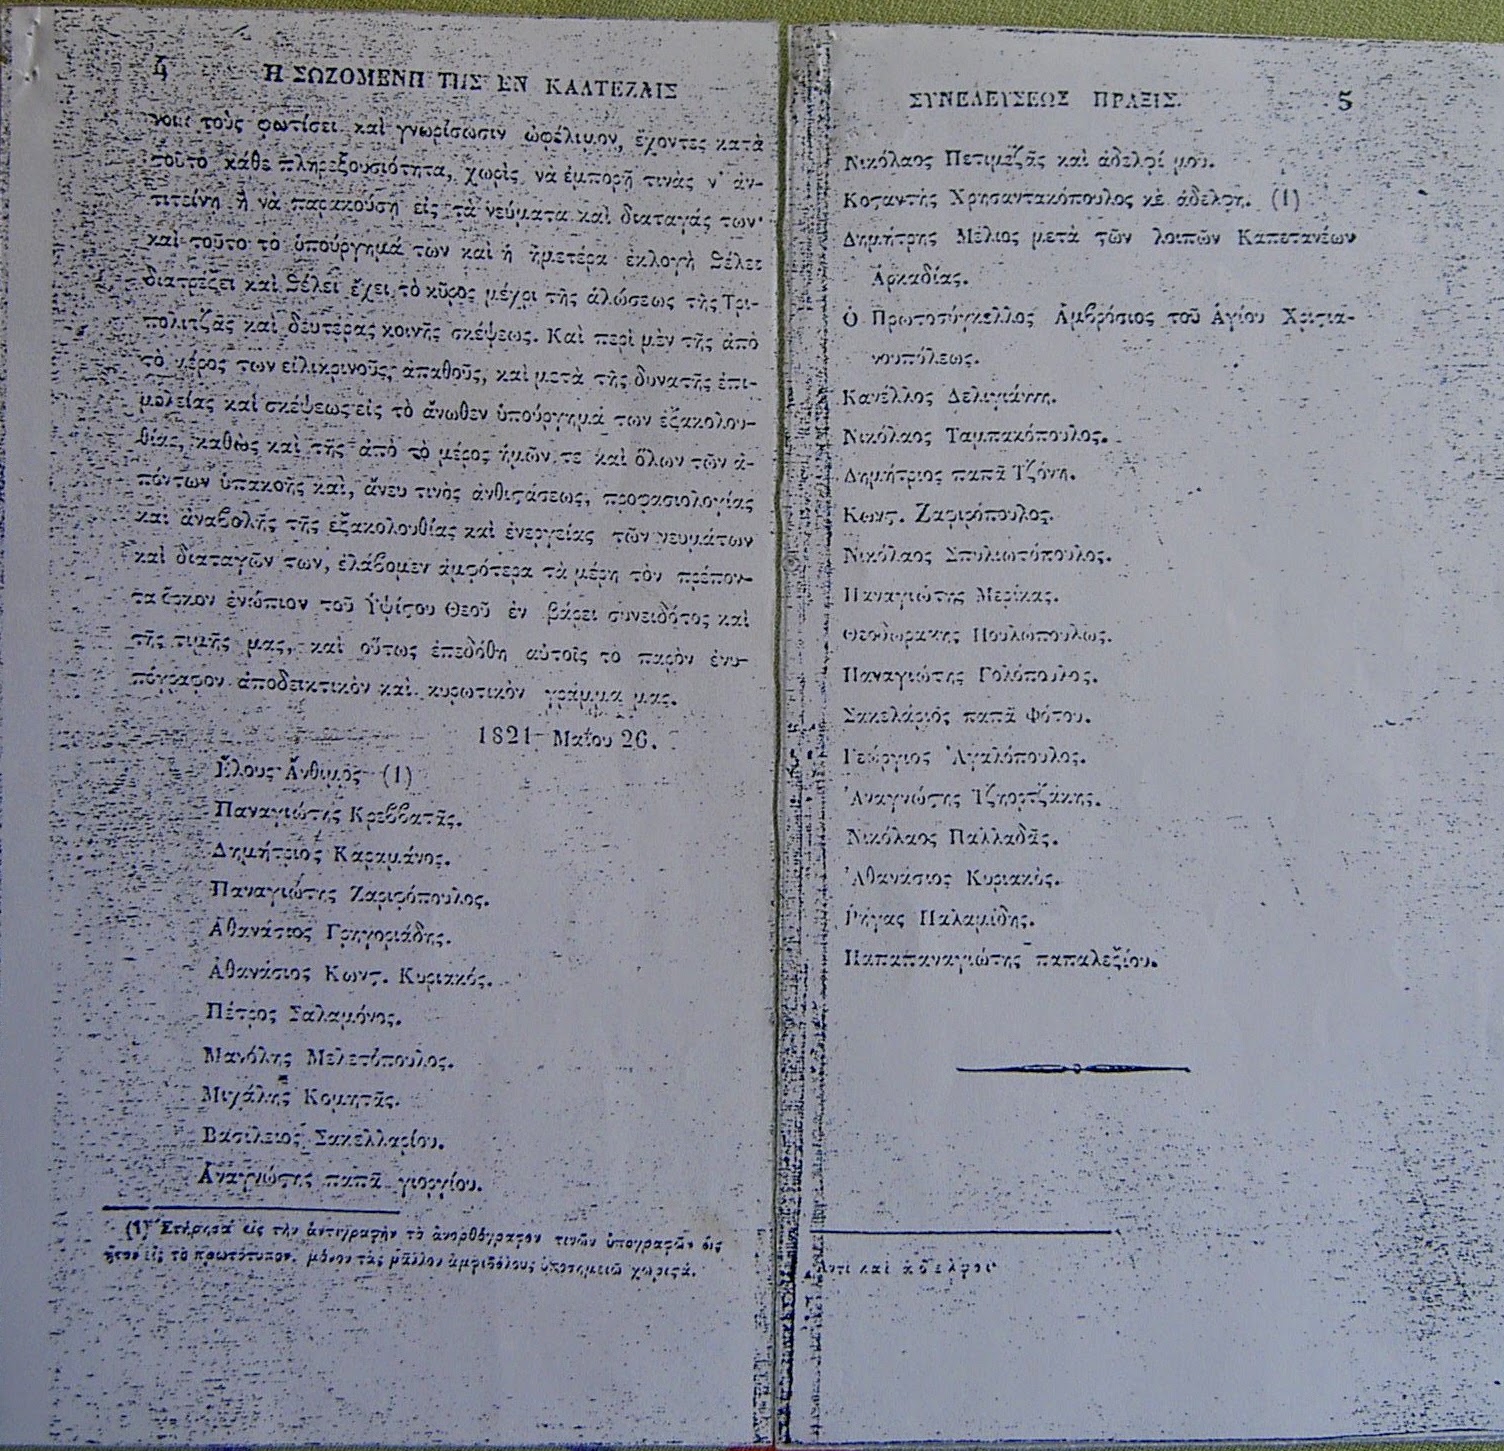 4 Η ΣΩΖΟΜΕΝΗ ΤΗΣ ΕΝ ΚΑΛΤΕΖΑΙΣ
τοὺς φωτίσει καὶ γνωρίσωσιν ὠφέλιμον, ἔχοντες κατὰ
τοῦτο κάθε πληρεξουσιότητα, χωρὶς νὰ ἐμπορῇ τινὰς ν' ἀν-
τιτείνῃ ἢ νὰ παρακούσῃ εἰς τὰ νεύματα καὶ διαταγάς των·
καὶ τοῦτο τὸ ὑπούργημά των καὶ ἡ ἡμετέρα ἐκλογὴ θέλει
διατρέξει καὶ θέλει ἔχει τὸ κῦρος μέχρι τῆς ἁλώσεως τῆς Τρι-
πολιτζᾶς καὶ δευτέρας κοινῆς σκέψεως. Καὶ περὶ μὲν τῆς ἀπὸ
τὸ μέρος των εἰλικρινοῦς, ἀπαθοῦς, καὶ μετὰ τῆς δυνατῆς ἐπι-
μελείας καὶ σκέψεως εἰς τὸ ἄνωθεν ὑπούργημά των ἐξακολου-
θίας, καθὼς καὶ τῆς ἀπὸ τὸ μέρος ἡμῶν τε καὶ ὅλων τῶν ἀ-
πόντων ὑπακοῆς καὶ, ἄνευ τινὸς ἀνθιστάσεως, προφασιολογίας
καὶ ἀναβολῆς τῆς ἐξακολουθίας καὶ ἐνεργείας τῶν νευμάτων
καὶ διαταγῶν των, ἐλάβομεν ἀμφότερα τὰ μέρη τὸν πρέπον-
τα ὅρκον ἐνώπιον τοῦ Ὑψίστου Θεοῦ ἐν βάρει συνειδότος καὶ
τῆς τιμῆς μας, καὶ οὕτως ἐπεδόθη αὐτοῖς τὸ παρὸν ἐνυ-
πόγραφον ἀποδεικτικὸν καὶ κυρωτικὸν γράμμα μας.
1821 Μαΐου 26.
Ἕλους Ἄνθιμος (1)
Παναγιώτης Κρεββατᾶς.
Δημήτριος Καραμάνος.
Παναγιώτης Ζαφιρόπουλος.
Ἀθανάσιος Γρηγοριάδης.
Ἀθανάσιος Κωνστ. Κυριακός.
Πέτρος Σαλαμόνος.
Μανόλης Μελετόπουλος.
Μιχάλης Κομητᾶς.
Βασίλειος Σακελλαρίου.
Ἀναγνώστης παπᾶ γιοργίου.
(1) Ἐτήρησα εἰς τὴν ἀντιγραφὴν τὸ ἀνορθόγραφον τινῶν ὑπογραφῶν ὡς
ἦτον εἰς τὸ πρωτότυπον. μόνον τὰς μᾶλλον ἀμφιβόλους ὑποσημειῶ χωριστά.
ΣΥΝΕΛΕΥΣΕΩΣ ΠΡΑΞΙΣ. 5
Νικόλαος Πετιμεζᾶς καὶ ἀδελφοί μου.
Κοσταντής Χρησαντακόπουλος κὲ ἀδελφη. (1)
Δημήτρης Μέλιος μετὰ τῶν λοιπῶν Καπετανέων
Ἀρκαδίας.
Ὁ Πρωτοσύγκελλος Ἀμβρόσιος τοῦ Ἁγίου Χριστια-
νουπόλεως.
Κανέλλος Δελιγιάννη.
Νικόλαος Ταμπακόπουλος.
Δημήτριος παπᾶ Τζόνη.
Κωνστ. Ζαφιρόπουλος.
Νικόλαος Σπυλιωτόπουλος.
Παναγιώτης Μερίκας.
Θεοδωρακης Πουλωπουλως.
Παναγιώτης Γολόπουλος.
Σακελάριός παπᾶ Φότου.
Γεώργιος Ἀγαλόπουλος.
Ἀναγνώστης Τζηορτζάκης.
Νικόλαος Παλλαδᾶς.
Ἀθανάσιος Κυριακὸς.
Ῥήγας Παλαμίδης.
Παπαπαναγιώτης παπαλεξίου.
Ἀντὶ καὶ ἀδελφοί